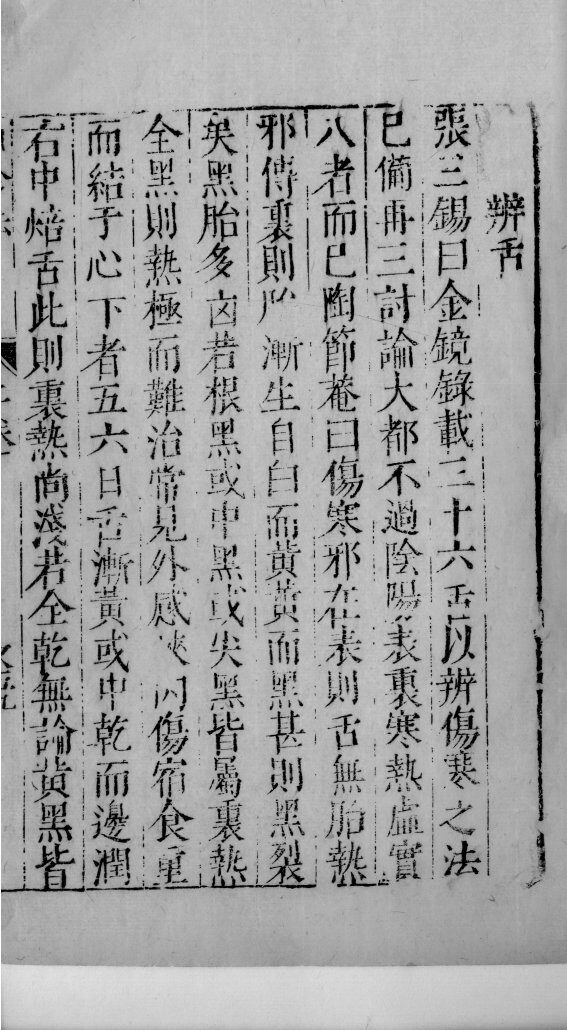 辨舌
張三錫曰金鏡錄載三十六舌以辨傷寒之法
已備再三討論大都不過陰陽表裏寒熱虛實
八者而已陶節菴曰傷寒邪在表則舌無胎熱
邪傳裏則胎漸生自白而黃黃而黑甚則黑裂
矣黑胎多凶若根黑或中黑或尖黑皆屬裏熱
全黑則熱極而難治常見外感挾內傷宿食重
而結于心下者五六日舌漸黃或中乾而邊潤
名中焙舌此則裏熱尚淺若全乾無論黃黑皆